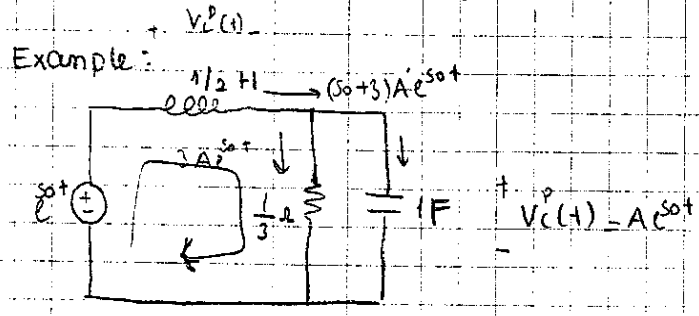 + V_L^P(t) -
Example:
1/2 H → (s0+3)A e^{s0t}
e^{s0t} + -
3A e^{s0t}
1/3 Ω
1F
+ V_C^P(t) = A e^{s0t}
-